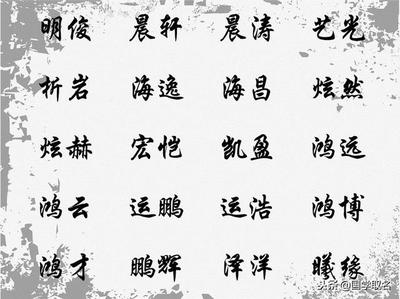 明俊 晨轩 晨涛 艺光
析岩 海逸 海昌 炫然
炫赫 宏恺 凯盈 鸿远
鸿云 运鹏 运浩 鸿博
鸿才 鹏辉 泽洋 曦缘
头条@国学取名